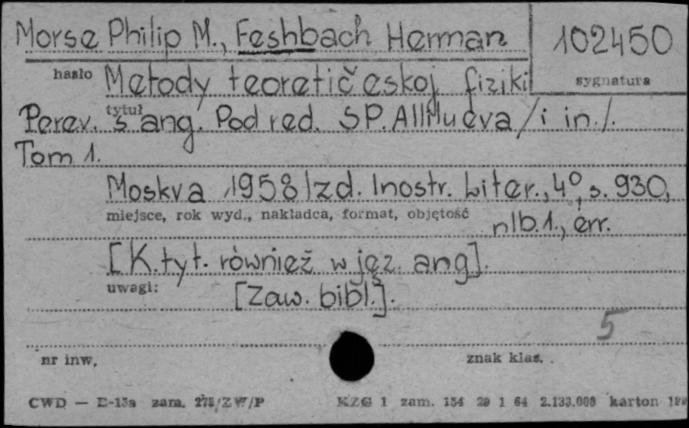 Morse Philip M., Feshbach Herman 102450
hasło sygnatura
Metody teoretičeskoj fiziki
tytuł
Perev. s ang. Pod red. S.P. Allilueva /i in./.
Tom 1.
Moskva 1958 Izd. Inostr. Liter., 4°, s. 930,
miejsce, rok wyd., nakładca, format, objętość
nlb. 1., err.
[K. tyt. również w jęz. ang].
uwagi: [Zaw. bibl.].
5
nr inw. znak klas.
CWD — E-13a zam. KZG 1 zam. 154 29 1 64 2.133.000 karton